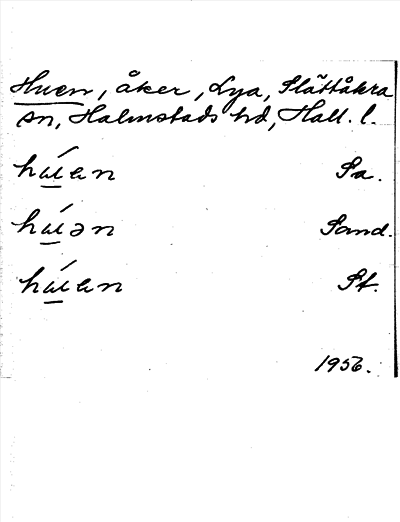 Huen, åker, Lya, Slättåkra
sn, Halmstads hd, Hall. l.
hú̱an Sa.
hú̱ən Sand.
hú̱an St.
1956.